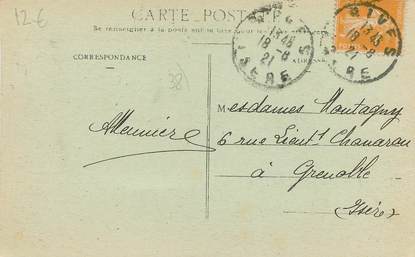 12-6
CARTE POSTALE
Se renseigner à la poste
CORRESPONDANCE
ADRESSE
RIVES
13 45
18 -8
21
ISÈRE
RIVES
13 45
18 -8
21
ISÈRE
38
Mesdames Montagny
AMeunier
6 rue Lieutt Chanaron
à Grenoble
(Isère)